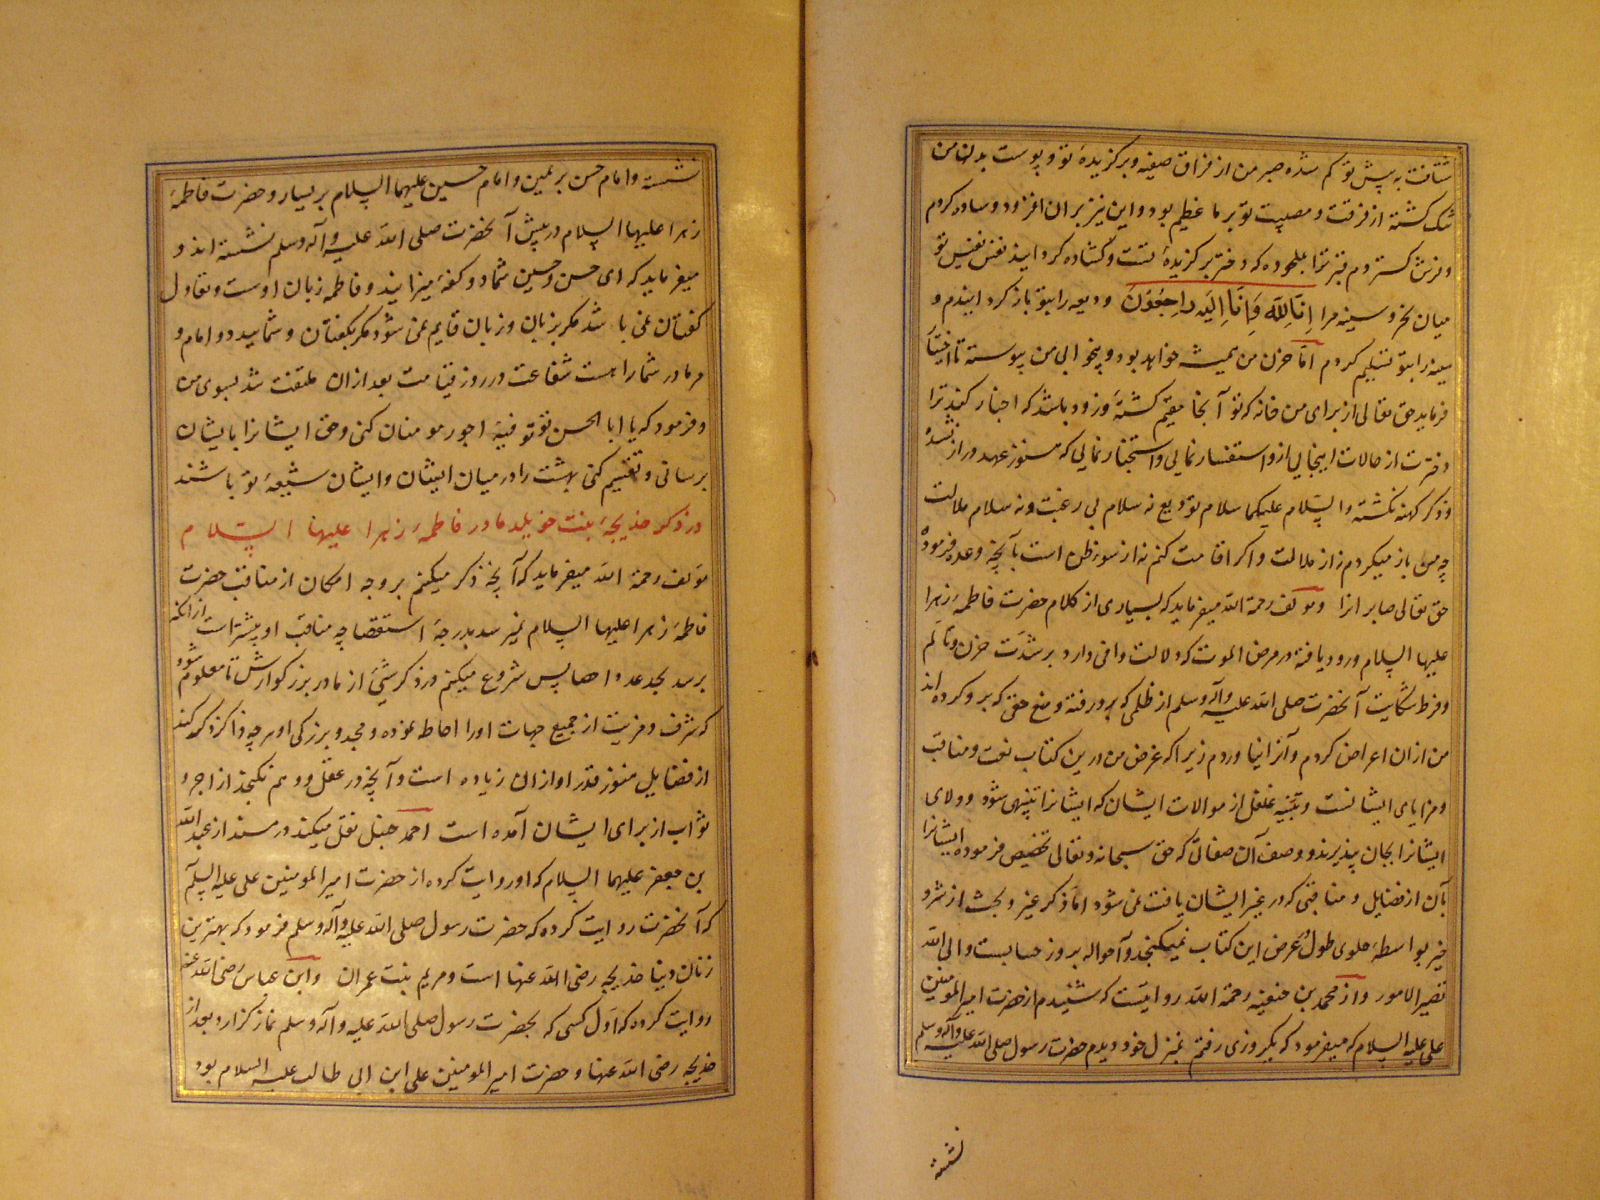 شتافت به پیش تو کم شده صبر من از فراق صفیه و برگزیدهٔ تو و پوست بدن من
تنک کشته از فرقت و مصیبت تو بر ما عظیم بود و این نیز بران افزود و ساده کردم
و فرش کستردم قبر ترا بلحود که دختر برگزیدهٔ تست و کشاده کردانید نفس نفیس تو
میان نحر و سینه مرا إنا لله وَإنا إليه راجعون ودیعه را بتو باز کردانیدم و
سینه را بتو تسلیم کردم اما حزن من همیشه خواهد بود و بیخوابی من پیوسته تا اختیار
فرماید حق تعالی از برای من خانه که تو آنجا مقیم کشتهٔ و زود باشد که اخبار کند ترا
دخترت از حالات اینجایی از و استفسار نمایی و استخبار نمایی که هنوز عهد دراز نشده
و ذکر کهنه نکشته والسلام علیکما سلام تودیع نه سلام بی رغبت و نه سلام ملالت
چه من باز میکردم نه از ملالت و اکر اقامت کنم نه از سوء ظن است بآنچه وعده فرموده
حق تعالی صابرانرا و مولف رحمة الله میفرماید که بسیاری از کلام حضرت فاطمهٔ زهرا
علیها السلام ورود یافته در مرض الموت که دلالت وافی دارد بر شدّت حزن و تالم
و فرط شکایت آنحضرت صلی الله علیه وآله وسلم از ظلمی که برو رفته و منع حق که برو کرده اند
من ازان اعراض کردم و آنرا نیاوردم زیرا که غرض من درین کتاب نعت و مناقب
و مزایای ایشانست و تنبیه غافل از موالات ایشان که ایشانرا تنبیهی شود و ولای
ایشانرا بجان پذیرند و وصف آن صفاتی که حق سبحانه و تعالی تخصیص فرموده ایشانرا
بآن از فضایل و مناقبی که در غیر ایشان یافت نمی شود اما ذکر غیر و بحث از شر و
خیر بواسطهٔ حاوی طول و عرض این کتاب نمیکنجد و آحواله بروز حسابست والی الله
تصیر الامور و از محمد بن حنفیه رحمة الله روایتست که شنیدم از حضرت امیرالمومنین
علی علیه السلام که میفرمود که یکروزی رفتم بمنزل خود دیدم حضرت رسول صلی الله علیه وآله وسلم
نشسته
نشسته و امام حسن بر یمین و امام حسین علیهما السلام بر یسار و حضرت فاطمهٔ
زهرا علیها السلام در پیش آنحضرت صلی الله علیه وآله وسلم نشسته اند و
میفرماید که ای حسن و حسین شما دو کفهٔ میزانید و فاطمه زبان اوست و تعادل
کفتان نمی باشد مکر بزبان و زبان قایم نمی شود مکر بکفتان و شمایید دو امام و
مر مادر شما راست شفاعت در روز قیامت بعد ازان ملتفت شد بسوی من
و فرمود که یا ابا الحسن تو توفیهٔ اجور مومنان کنی و حق ایشانرا بایشان
برسانی و تقسیم کنی بهشت را در میان ایشان و ایشان شیعهٔ تو باشند
در ذکر خدیجهٔ بنت خویلد مادر فاطمهٔ زهرا علیها السلام
مولف رحمة الله میفرماید که آنچه ذکر میکنم بر وجه امکان از مناقب حضرت
فاطمهٔ زهرا علیها السلام نمیرسد بدرجهٔ استقصا چه مناقب او بیشتر است از انکه
برسد بحد عد و احصا پس شروع میکنم در ذکر شیٔ از مادر بزرکوارش تا معلوم شود
که شرف و مزیت از جمیع جهات او را احاطه نموده و مجد و بزرکی او هر چه ذاکر ذکر کند
از فضایل هنوز قدر او ازان زیاده است و آنچه در عقل و وهم نکنجد از اجر و
ثواب از برای ایشان آمده است احمد حنبل نقل میکند در مسند از عبدالله
بن جعفر علیهما السلام که او روایت کرده از حضرت امیرالمومنین علی علیه السلام
که آنحضرت روایت کرده که حضرت رسول صلی الله علیه وآله وسلم فرمود که بهترین
زنان دنیا خدیجه رضی الله عنها است و مریم بنت عمران و ابن عباس رضی الله عنه
روایت کرده که اول کسی که بحضرت رسول صلی الله علیه وآله وسلم نماز کزارد بعد از
خدیجه رضی الله عنها و حضرت امیرالمومنین علی ابن ابی طالب علیه السلام بود